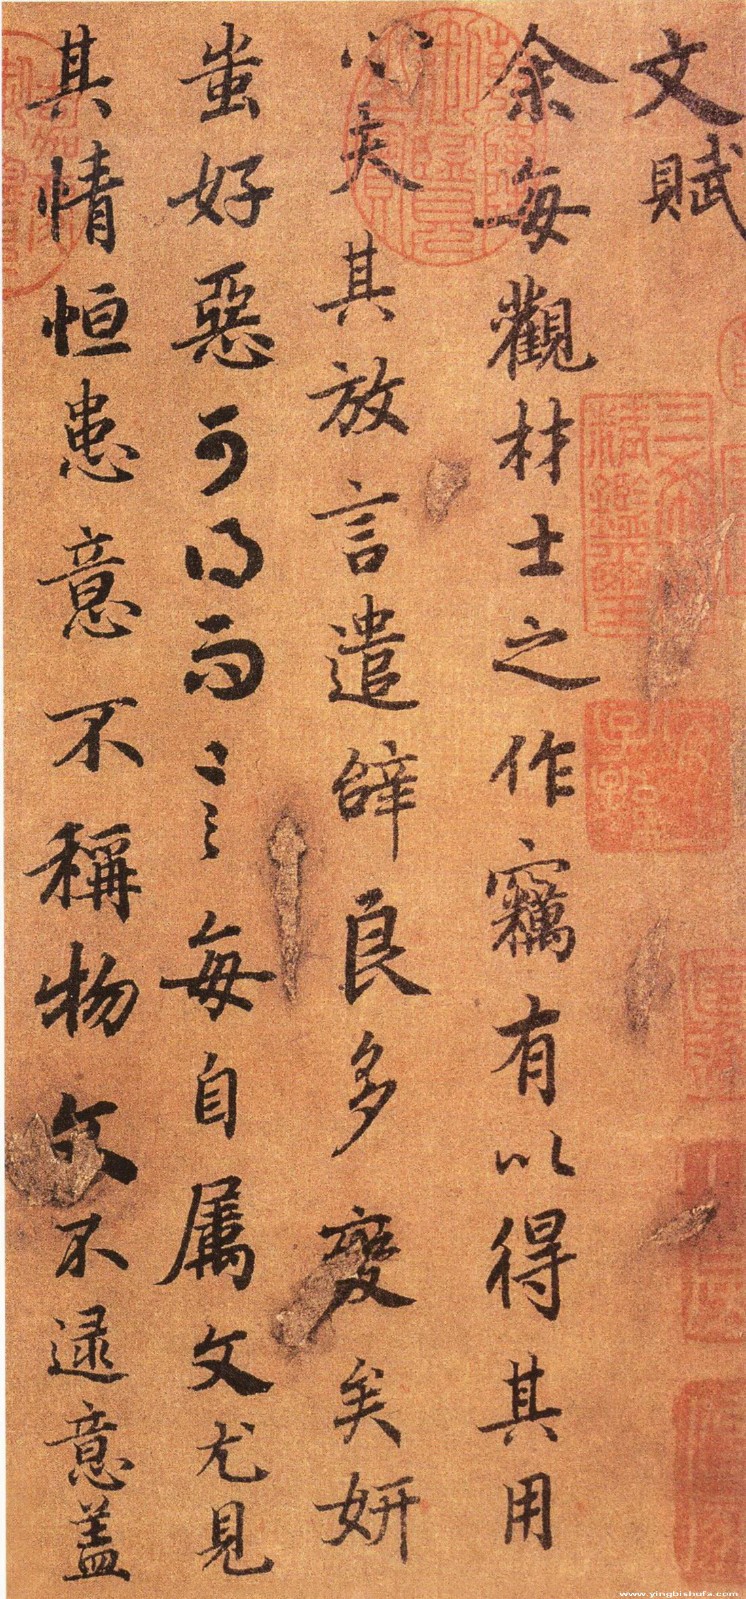 文賦
余每觀材士之作竊有以得其用
心夫其放言遣辭良多變矣妍
蚩好惡可得而言每自属文尤見
其情恒患意不稱物文不逮意盖
三希堂精鑑璽
宜子孫
www.yingbishufa.com